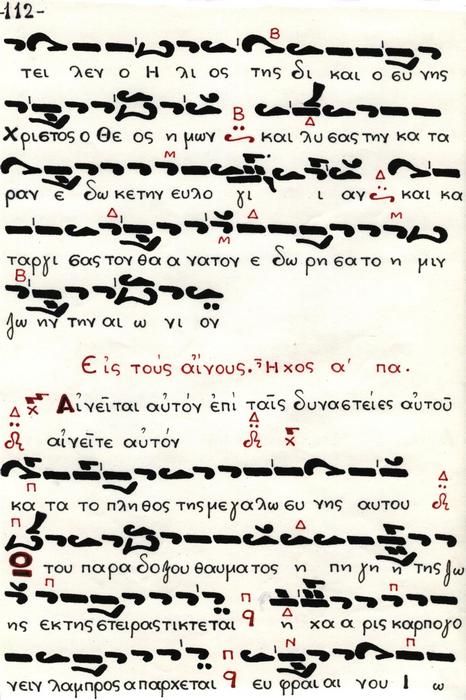 -112-
τει λεν ο Η λι ος της δι και ο συ νης
Χριστος ο Θε ος η μων και λυ σας την κα τα
ραν ε δω κε την ευλο γι ι αν και κα
ταργι σας τον θα α νατον ε δω ρη σα το η μιν
ζω ην την αι ω νι ον
Εἰς τοὺς αἴνους. Ἦχος α' πα.
Αἰνεῖται αὐτόν ἐπί ταῖς δυναστείες αὐτοῦ
αἰνεῖτε αὐτόν
κα τα το πληθος της με γα λω συ νης αυτου
10 του παρα δοξου θαυματος η πη γη η της ζω
ης εκ της στειρας τικτεται η χα α ρις καρπογο
νειν λαμπρος απαρχεται ευ φραι αι νου Ι ω